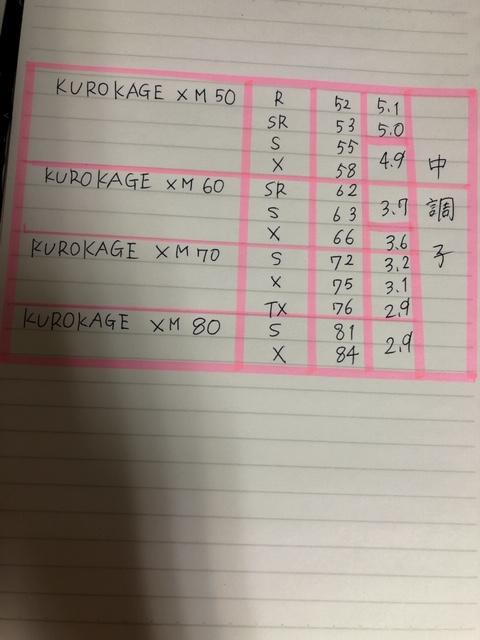 KUROKAGE XM50 R 52 5.1
SR 53 5.0
S 55 4.9
X 58
KUROKAGE XM60 SR 62 3.7
S 63
X 66 3.6
KUROKAGE XM70 S 72 3.2
X 75 3.1
TX 76 2.9
KUROKAGE XM 80 S 81 2.9
X 84
中調子